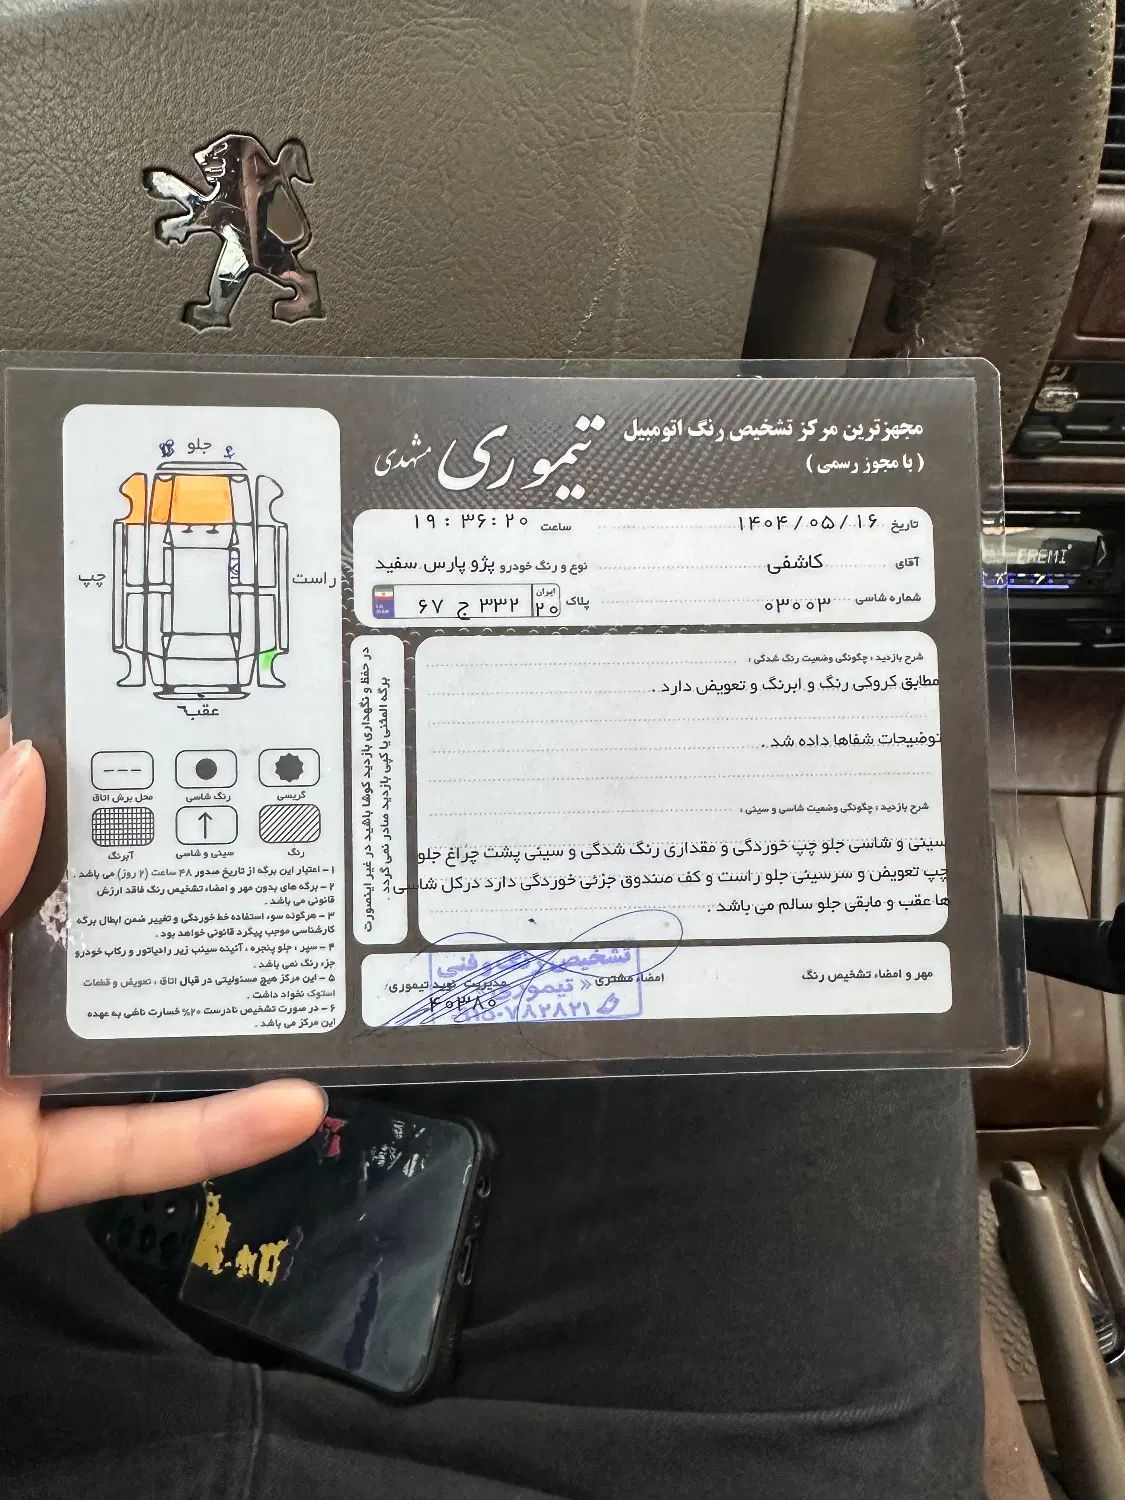 مجهزترین مرکز تشخیص رنگ اتومبیل
( با مجوز رسمی )
تیموری
مشهدی
تاریخ ۱۴۰۴/۰۵/۱۶
ساعت ۱۹:۳۶:۲۰
آقای کاشفی
نوع و رنگ خودرو پژو پارس سفید
شماره شاسی ۰۳۰۰۳
پلاک ایران ۲۰ ۳۳۲ ج ۶۷
شرح بازدید : چگونگی وضعیت رنگ شدگی :
مطابق کروکی رنگ و ابرنگ و تعویض دارد .
توضیحات شفاها داده شد .
شرح بازدید : چگونگی وضعیت شاسی و سینی :
سینی و شاسی جلو چپ خوردگی و مقداری رنگ شدگی و سینی پشت چراغ جلو
چپ تعویض و سرسینی جلو راست و کف صندوق جزئی خوردگی دارد درکل شاسی
ها عقب و مابقی جلو سالم می باشد .
مهر و امضاء تشخیص رنگ
امضاء مشتری
مدیریت نوید تیموری:
۴۰۳۸۰
تشخیص رنگ و فنی
تیموری
در حفظ و نگهداری بازدید کوشا باشید در غیر اینصورت
برگه المثنی یا کپی بازدید صادر نمی گردد .
جلو
چپ
راست
عقب
گریسی
رنگ شاسی
محل برش اتاق
رنگ
سینی و شاسی
آبرنگ
۱- اعتبار این برگه از تاریخ صدور ۴۸ ساعت (۲ روز) می باشد .
۲- برگه های بدون مهر و امضاء تشخیص رنگ فاقد ارزش
قانونی می باشد .
۳- هرگونه سوء استفاده خط خوردگی و تغییر ضمن ابطال برگه
کارشناسی موجب پیگرد قانونی خواهد بود .
۴- سپر ، جلو پنجره ، آئینه سینب زیر رادیاتور و رکاب خودرو
جزء رنگ نمی باشد .
۵- این مرکز هیچ مسئولیتی در قبال اتاق ، تعویض و قطعات
استوک نخواد داشت .
۶- در صورت تشخیص نادرست ۲۰% خسارت ناشی به عهده
این مرکز می باشد .